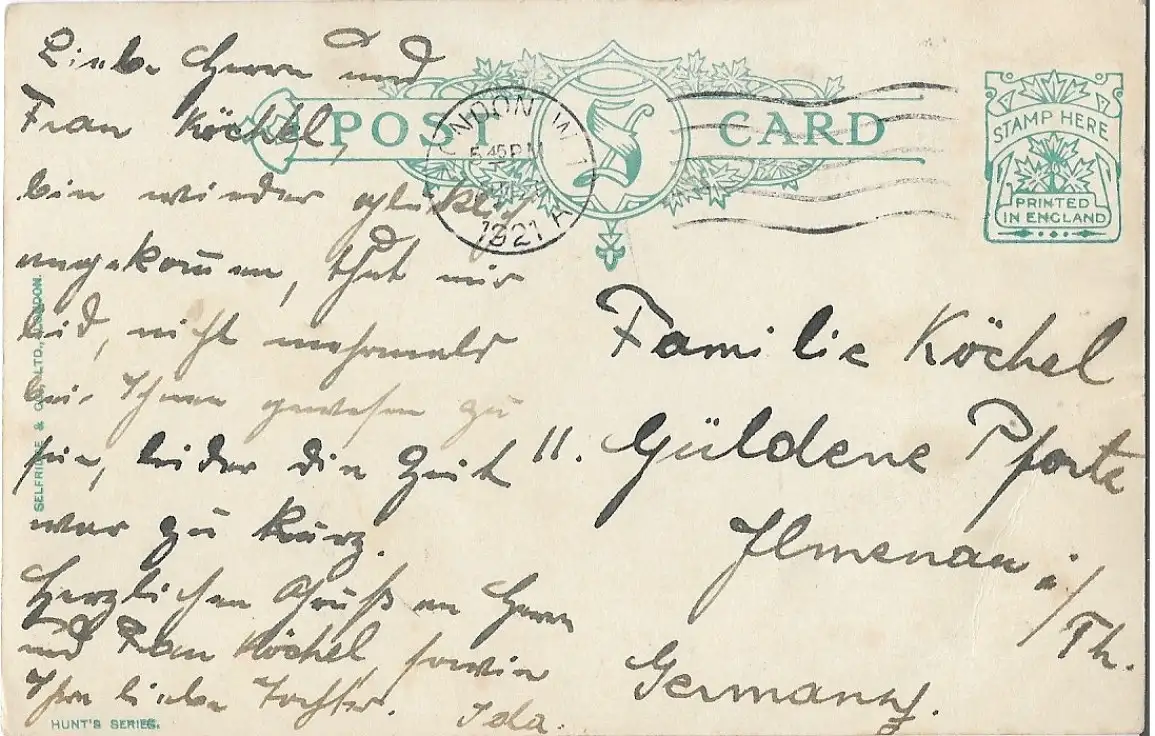 Liebe Herrn und
Frau Köchel,
bin wieder glücklich
angekom̄en, thut mir
leid, nicht mehrmals
bei Ihnen gewesen zu
sein, leider die Zeit
war zu kurz.
Herzlichen Gruß an Herrn
und Frau Köchel, sowie
Ihre liebe Tochter. Ida.
POST CARD
LONDON W.1
5.45 PM
1921
STAMP HERE
PRINTED
IN ENGLAND
Familie Köchel
11. Güldene Pforte
Ilmenau i/Th.
Germany.
SELFRIDGE & CO., LTD., LONDON.
HUNT'S SERIES.